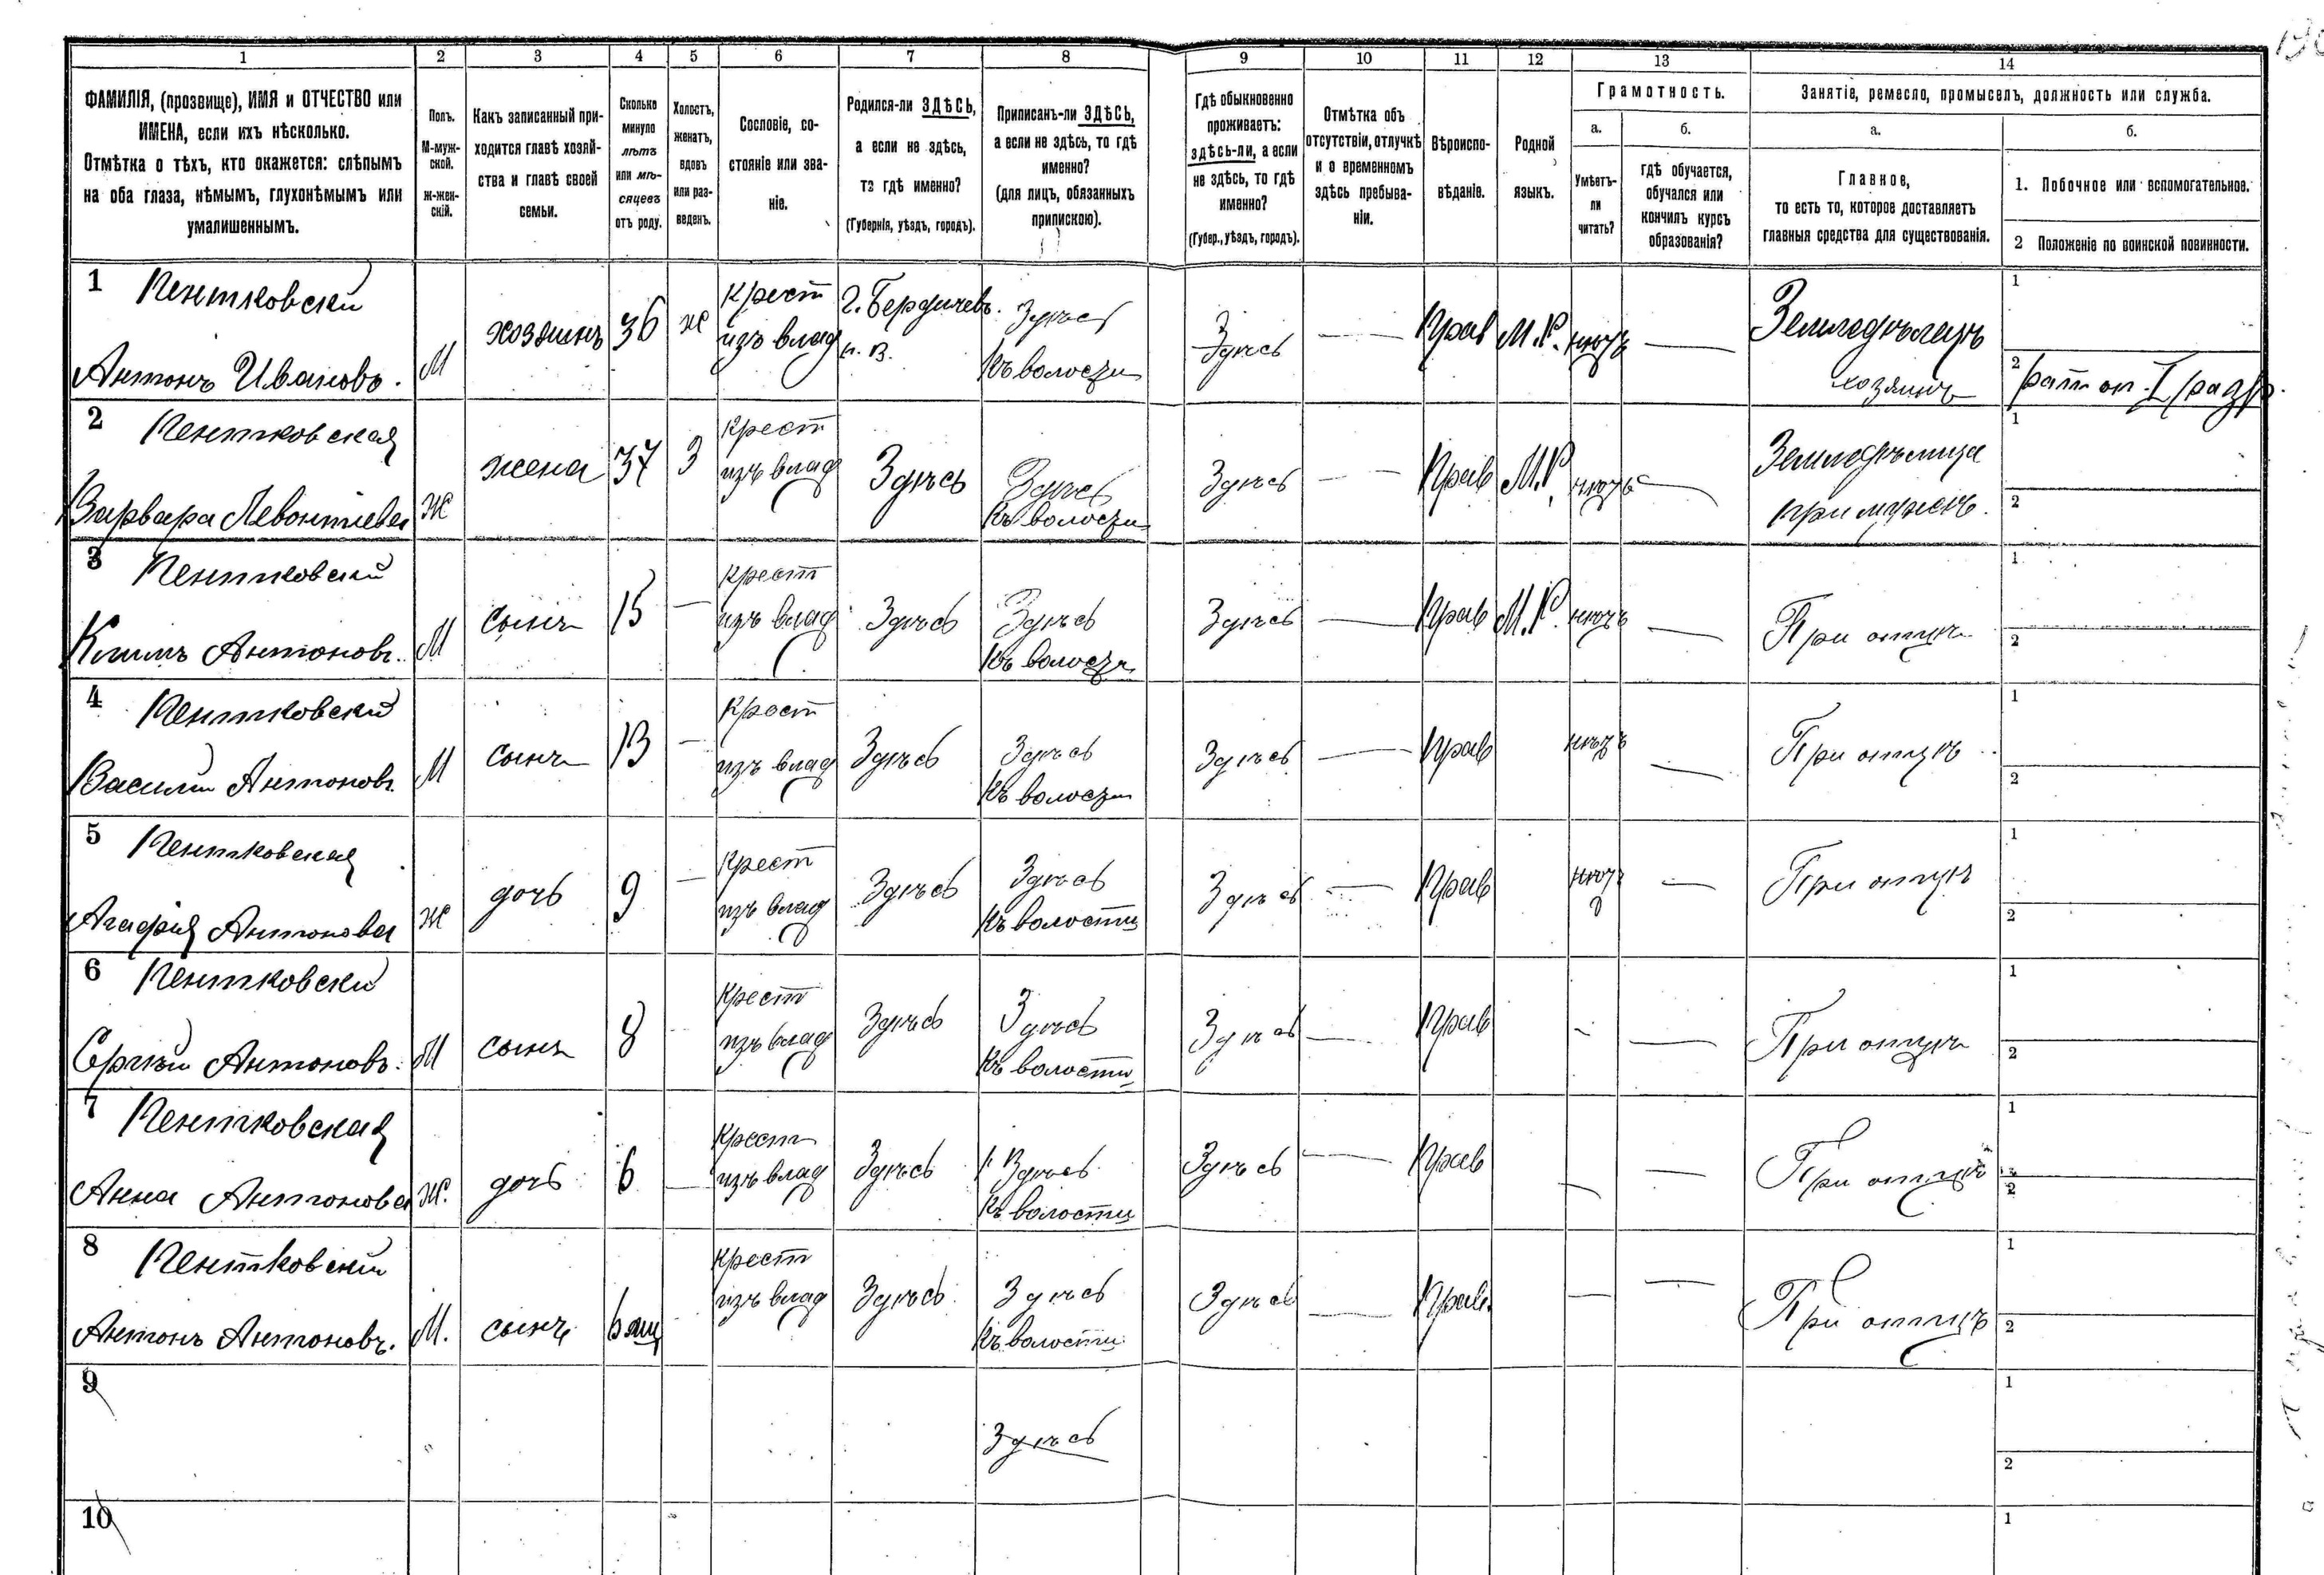 1 2 3 4 5 6 7 8 9 10 11 12 13 14
ФАМИЛІЯ, (прозвище), ИМЯ и ОТЧЕСТВО или
ИМЕНА, если ихъ нѣсколько.
Отмѣтка о тѣхъ, кто окажется: слѣпымъ
на оба глаза, нѣмымъ, глухонѣмымъ или
умалишеннымъ.
Полъ.
М-муж-
ской.
Ж-жен-
скій.
Какъ записанный при-
ходится главѣ хозяй-
ства и главѣ своей
семьи.
Сколько
минуло
лѣтъ
или мѣ-
сяцевъ
отъ роду.
Холостъ,
женатъ,
вдовъ
или раз-
веденъ.
Сословіе, со-
стояніе или зва-
ніе.
Родился-ли ЗДѢСЬ,
а если не здѣсь,
то гдѣ именно?
(Губернія, уѣздъ, городъ).
Приписанъ-ли ЗДѢСЬ,
а если не здѣсь, то гдѣ
именно?
(для лицъ, обязанныхъ
припискою).
Гдѣ обыкновенно
проживаетъ:
здѣсь-ли, а если
не здѣсь, то гдѣ
именно?
(Губер., уѣздъ, городъ).
Отмѣтка объ
отсутствіи, отлучкѣ
и о временномъ
здѣсь пребыва-
ніи.
Вѣроиспо-
вѣданіе.
Родной
языкъ.
Грамотность.
а.
Умѣетъ-
ли
читать?
б.
гдѣ обучается,
обучался или
кончилъ курсъ
образованія?
Занятіе, ремесло, промыселъ, должность или служба.
а.
Главное,
то есть то, которое доставляетъ
главныя средства для существованія.
б.
1. Побочное или вспомогательное.
2 Положеніе по воинской повинности.
1 Пентковскій
Антонъ Ивановъ.
М
хозяинъ
36
ж
Крест
изъ влад
г. Бердичевъ.
Здѣсь
Къ волости
Здѣсь
—
Прав
М.Р.
нѣтъ
—
Земледѣлецъ
хозяинъ
1
2 рат оп. I разр.
2 Пентковская
Варвара Левонтіева
ж
жена
37
З
Крест
изъ влад
Здѣсь
Здѣсь
Къ волости
Здѣсь
—
Прав
М.Р.
нѣтъ
—
Земледѣлица
при мужѣ.
1
2
3 Пентковскій
Климъ Антоновъ.
М
сынъ
15
—
Крест
изъ влад
Здѣсь
Здѣсь
Къ волости
Здѣсь
—
Прав
М.Р.
нѣтъ
—
При отцѣ
1
2
4 Пентковскій
Василій Антоновъ.
М
сынъ
13
—
Крест
изъ влад
Здѣсь
Здѣсь
Къ волости
Здѣсь
—
Прав
нѣтъ
—
При отцѣ
1
2
5 Пентковская
Агафія Антонова
ж
дочь
9
—
Крест
изъ влад
Здѣсь
Здѣсь
Къ волости
Здѣсь
—
Прав
нѣтъ
—
При отцѣ
1
2
6 Пентковскій
Сергѣй Антоновъ.
М
сынъ
8
-
Крест
изъ влад
Здѣсь
Здѣсь
Къ волости
Здѣсь
—
Прав
-
—
При отцѣ
1
2
7 Пентковская
Анна Антонова
ж.
дочь
6
—
Крест
изъ влад
Здѣсь
Здѣсь
Къ волости
Здѣсь
—
Прав
—
—
При отцѣ
1
2
8 Пентковскій
Антонъ Антоновъ.
М.
сынъ
6 мц
-
Крест
изъ влад
Здѣсь
Здѣсь
Къ волости
Здѣсь
—
Прав.
—
—
При отцѣ
1
2
9
Здѣсь
1
2
10
1